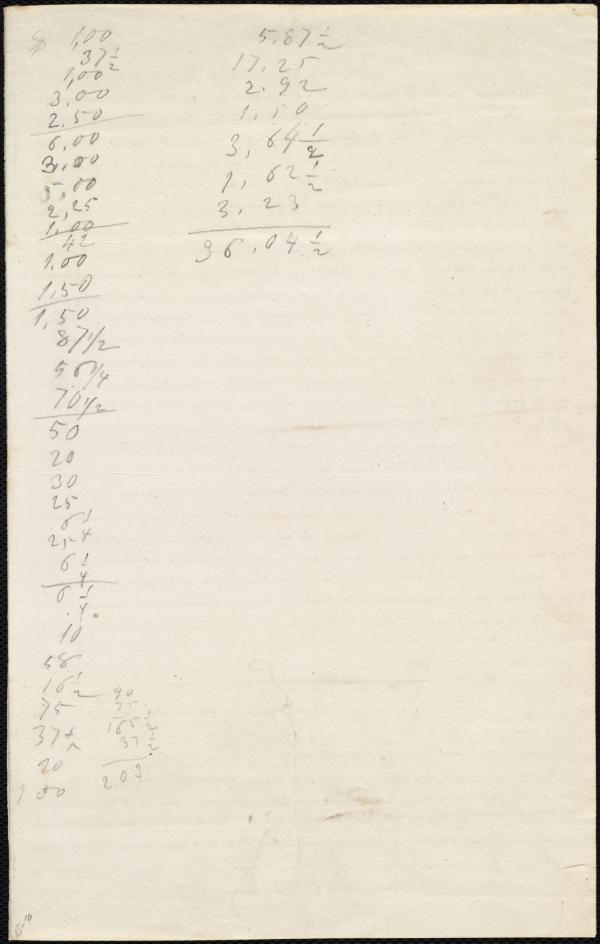 $ 1,00
37 1/2
1,00
3,00
2.50
6,00
3,00
5,00
2,25
1,00
42
1,00
1,50
1,50
87 1/2
56 1/4
70 1/2
50
20
30
25
6 1/4
2,
6 1/4
6 1/4
10
58
16 1/2
75
37
20
1 00
5.87 1/2
17.25
2.92
1,50
3,64 1/2
1,62 1/2
3.23
36.04 1/2
90
75
165 1/2
37 1/2
2.03